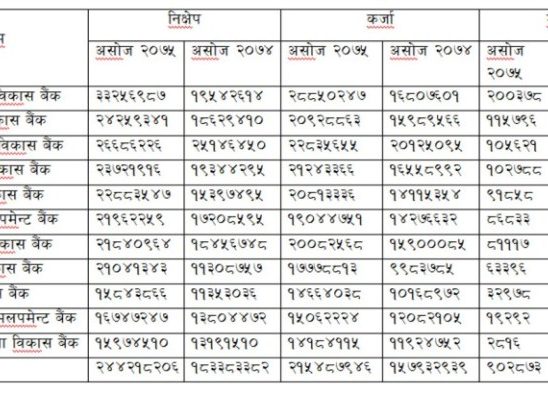 निक्षेप कर्जा
असोज २०७५ असोज २०७४ असोज २०७५ असोज २०७४ असोज
२०७५
विकास बैंक ३३२५६९८७ १९५४२६१४ २८८५०२४७ १६८०७६०१ २००३७८
कास बैंक २४२५९३४१ १८६२९४१० २०९२८८६३ १५९८९५६६ ११५७९६
विकास बैंक २६६८६२२६ २५१४६४५० २२८३५६५५ २०१२५०९५ १०५६२१
कास बैंक २३७२१९१६ १९३४४२९५ २१२४३३६६ १६५५८९९२ १०२७८८
कास बैंक २२८८३५४७ १५३९७४९५ २०८१३३३६ १४११५३५४ ९१८५८
पमेन्ट बैंक २१९६२२५९ १७२०८५९५ १९०४४७५१ १४२७६६३२ ८६८३३
कास बैंक २१८४०९६४ १८४५६७४८ २००८२५६८ १५९०००८५ ८१११७
कास बैंक २१०४१३४३ ११३०८७५७ १७७७८८१३ ९९८३७८५ ६३३९६
बैंक १५८४३८६६ ११३५३०३६ १४६६४०३८ १०१६८९७२ ३२९७८
भलपमेन्ट बैंक १६७४७२४७ १३८०४४७२ १५०६२२२४ १२०८२१०५ १९२९२
विकास बैंक १५९७४५१० १३१९१५१० १४१८४११५ ११९२४७५२ २८१६
२४४२१८२०६ १८३३८३३८२ २१५४८७९४६ १५७९३२९३९ ९०२८७३